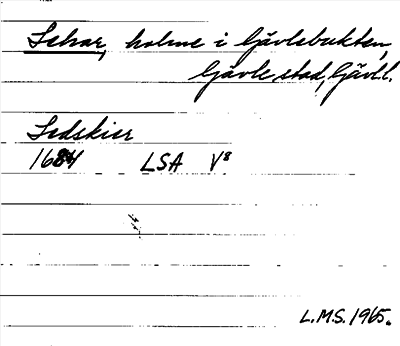 Sehar, holme i Gävlebukten,
Gävle stad, Gävl.l.
Sedskier
1684 LSA V⁸
L.M.S. 1965.